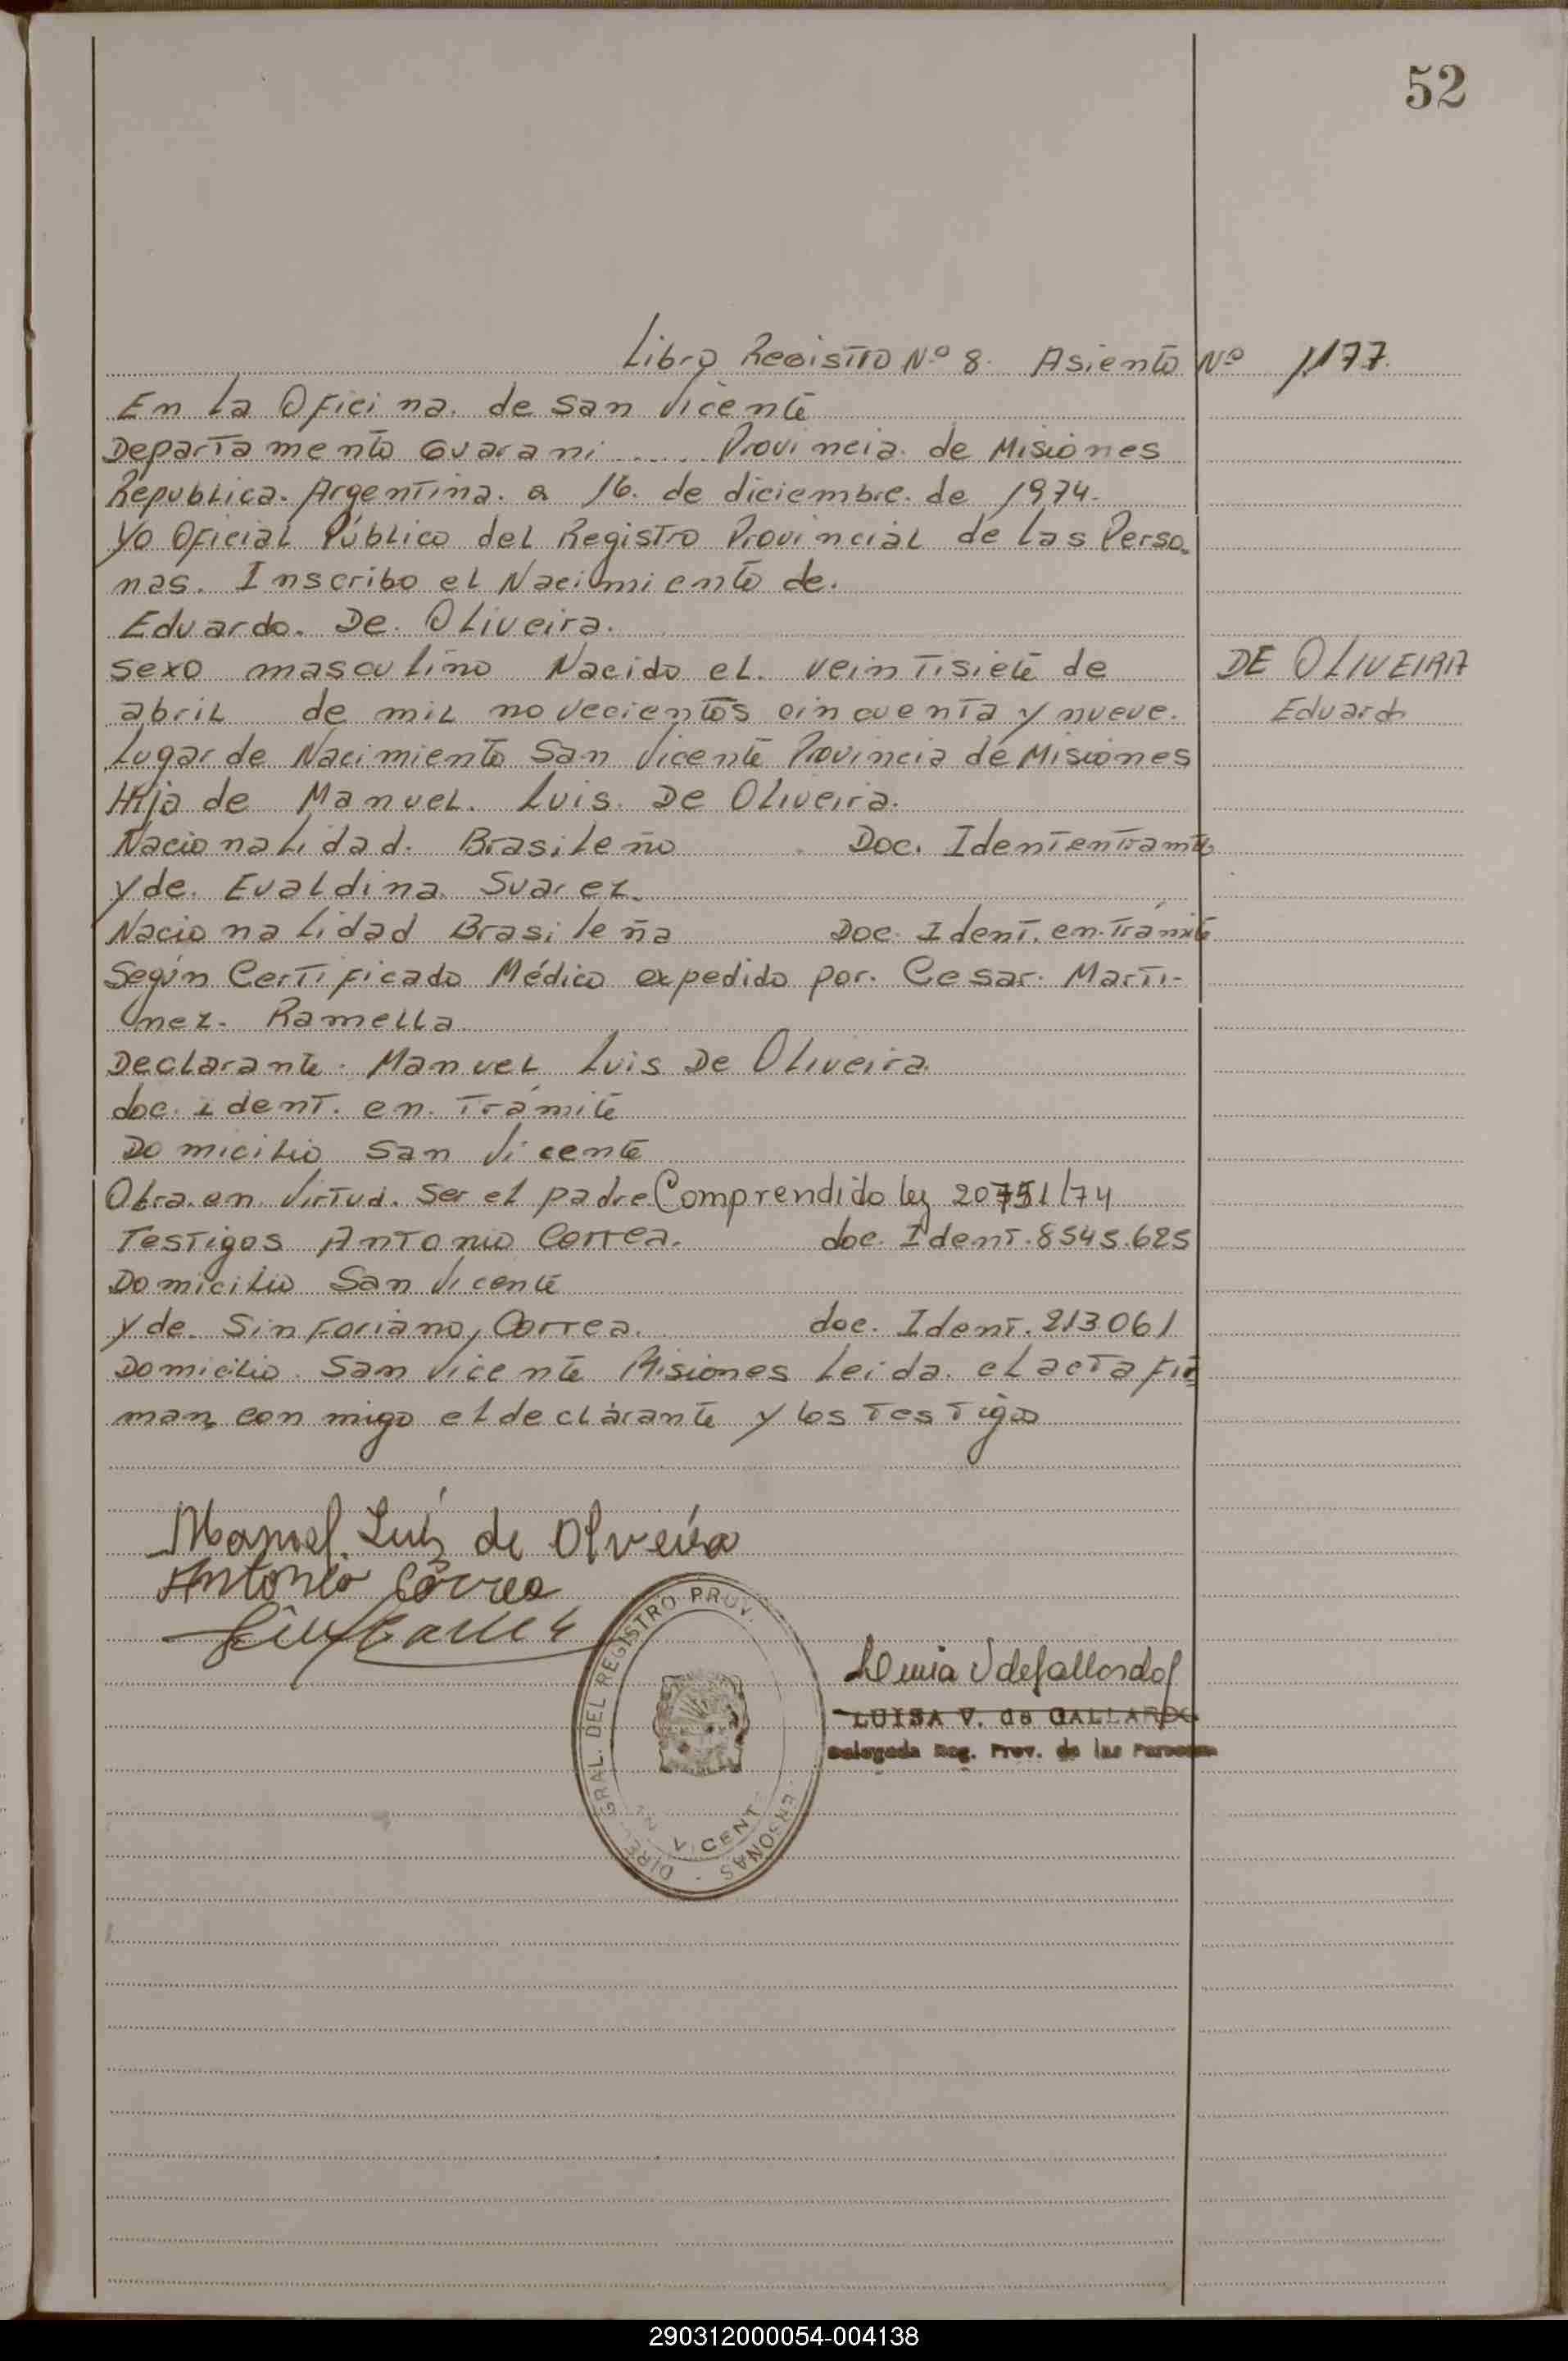 52
Libro Registro Nº 8. Asiento Nº 1177.
En La Oficina. de San Vicente
Departamento Guarani ..... Provincia. de Misiones
Republica. Argentina. a 16. de diciembre. de 1974.
Yo Oficial Público del Registro Provincial de las Perso.
nas. Inscribo el Nacimiento de.
Eduardo. De. Oliveira.
Sexo masculino Nacido el. veintisiete de
DE OLIVEIRA
abril de mil novecientos cincuenta y nueve.
Eduardo
Lugar de Nacimiento San Vicente Provincia de Misiones
Hijo de Manuel. Luis. De Oliveira.
Nacionalidad. Brasileño Doc. Ident en Tramite
y de. Evaldina. Suarez.
Nacionalidad Brasileña Doc. Ident. en. Trámite
Según Certificado Médico expedido por. Cesar. Marti-
nez. Ramella.
Declarante. Manuel Luis De Oliveira.
doc. ident. en. Trámite
Domicilio San Vicente
Obra. en. Virtud. Ser el padre Comprendido ley 20751/74
Testigos Antonio Correa. doc. Ident. 8545.625
Domicilio San Vicente
y de. Sinforiano, Correa. doc. Ident. 213061
Domicilio. San Vicente Misiones Leida. el acta fir
man, con migo el declárante y los Testigos
Manoel. Luis de Olveira
Antonio Côrrea
DIRE. GRAL. DEL REGISTRO PROV.
ERSONAS
VICENT
LUISA V. de GALLARDO
Delegada Reg. Prov. de las Personas
290312000054-004138